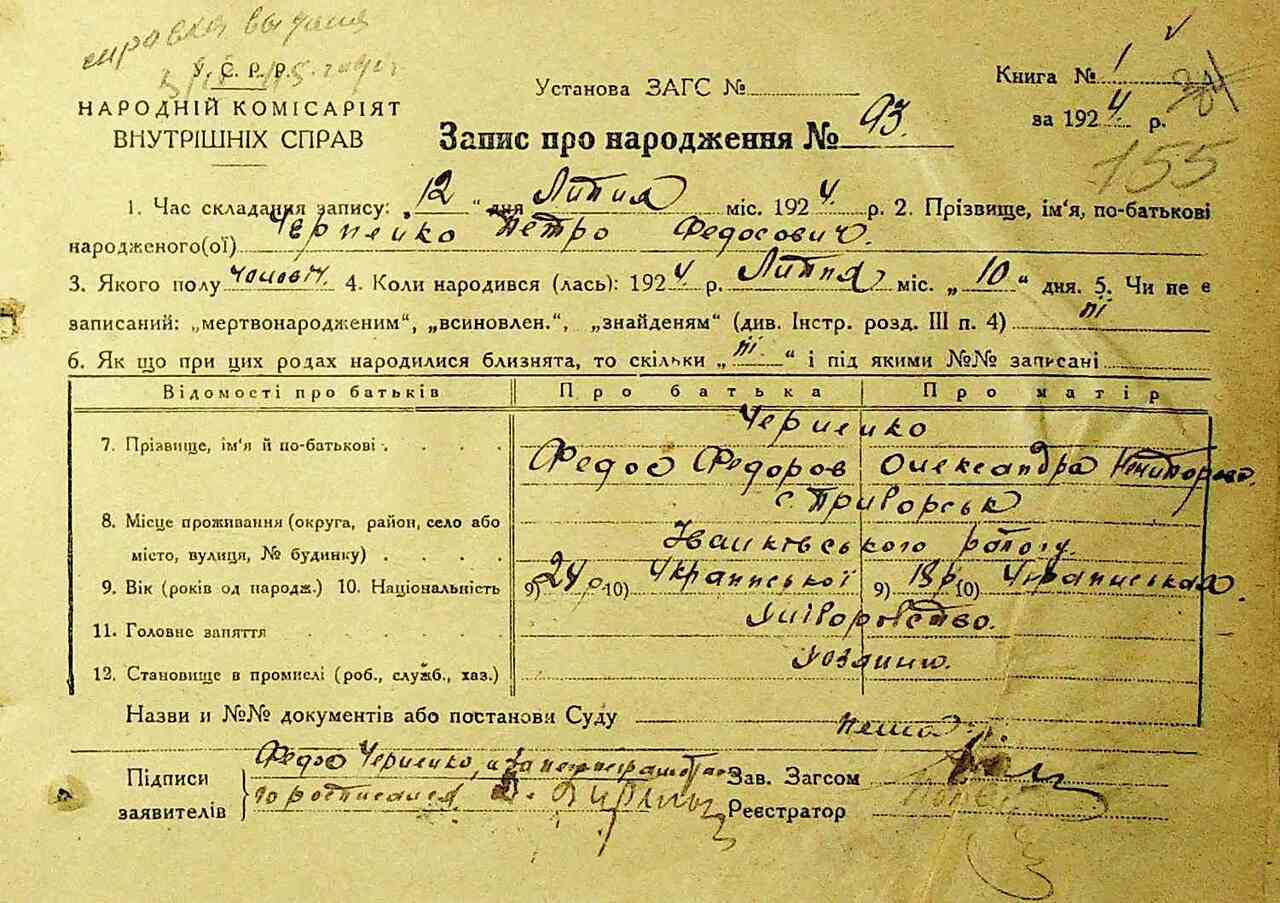 справка выдана
У. С. Р. Р.
НАРОДНІЙ КОМІСАРІЯТ
ВНУТРІШНІХ СПРАВ
Установа ЗАГС №
Книга № 1
за 1924 р.
155
Запис про народження № 93.
1. Час складання запису: „12" дня Липня міс. 1924 р. 2. Прізвище, ім'я, по-батькові
народженого(ої) Черненко Петро Федосович.
3. Якого полу чоловіч. 4. Коли народився (лась): 1924 р. Липня міс. „10" дня. 5. Чи не є
записаний: „мертвонародженим", „всиновлен.", „знайденям" (див. Інстр. розд. III п. 4) ні
6. Як що при цих родах народилися близнята, то скільки „ні" і під якими №№ записані
Відомості про батьків Про батька Про матір
7. Прізвище, ім'я й по-батькові Черненко
Федос Федоров Олександра
8. Місце проживання (округа, район, село або місто, вулиця, № будинку) с. Приборськ
Іванківського району.
9. Вік (років од народж.) 10. Національність 9) 24 р. 10) Української 9) 18 р. 10) Українська
11. Головне заняття Хліборобство.
12. Становище в промислі (роб., служб., хаз.) Хозяїни
Назви и №№ документів або постанови Суду нема
Підписи заявителів Федос Черненко, а за
росписался
Зав. Загсом
Реєстратор